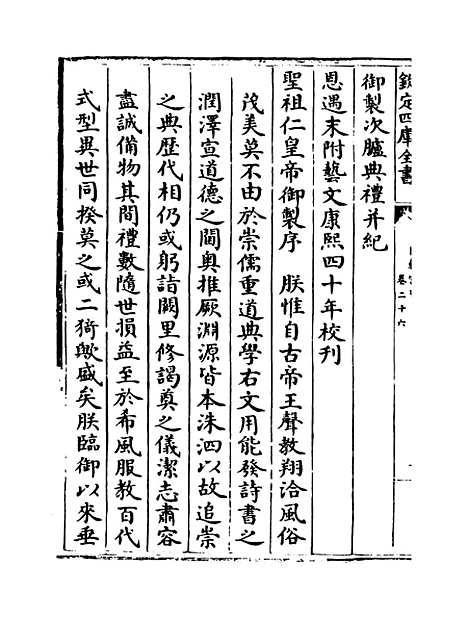 欽定四庫全書
卷二十六
御製次臚典禮并紀
恩遇末附藝文康熙四十年校刋
聖祖仁皇帝御製序　朕惟自古帝王聲教翔洽風俗
茂美莫不由於崇儒重道典學右文用能發詩書之
潤澤宣道德之閫奥推厥淵源皆本洙泗以故追崇
之典歴代相仍或躬詣闕里修謁奠之儀潔志肅容
盡誠備物其間禮數隨世損益至於希風服教百代
式型異世同揆莫之或二猗歟盛矣朕臨御以來垂